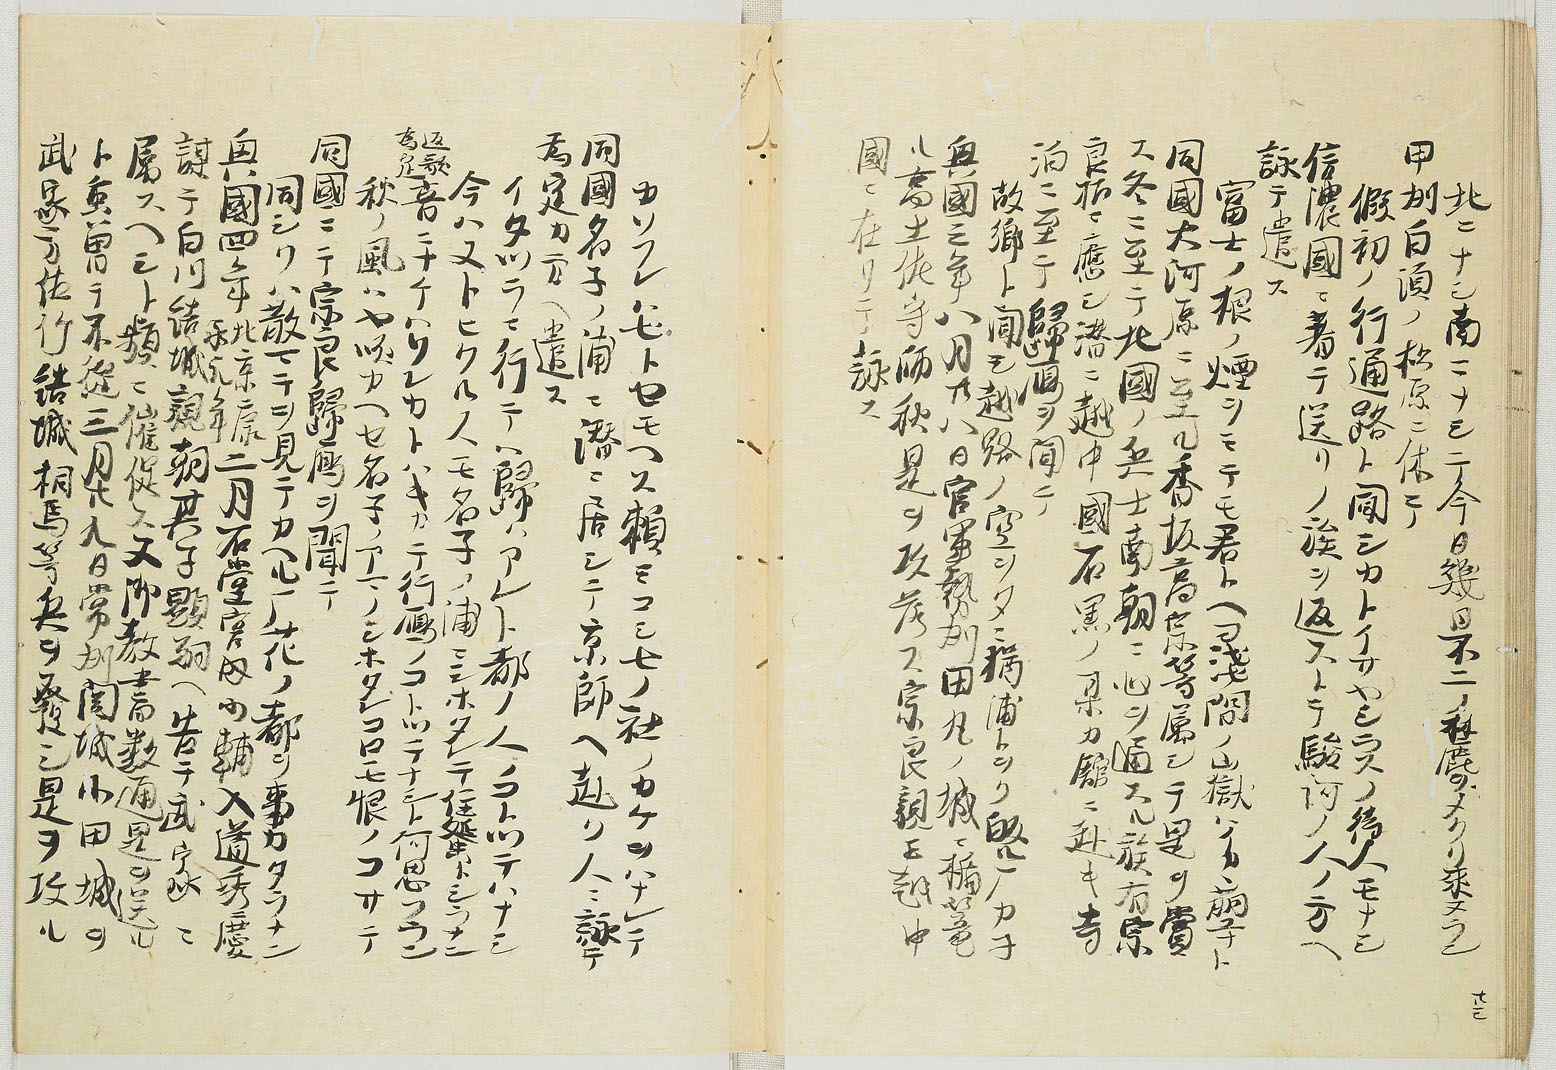 北ニナシ南ニナシテ今日幾日不二ノ麓ヲメクリ来ヌラン
甲州白須ノ松原ニ休テ
假初ノ行通路ト聞シカトイサヤシラスノ待人モナシ
信濃國ニ着テ送リノ族ヲ返ストテ駿河ノ人ノ方ヘ
詠テ遣ス
富士ノ根ノ煙ヲミテモ君トヘヨ浅間ノ山嶽ハイカヽ
同國大河原ニ至ル香坂高宗等属シテ是ヲ賞
ス冬ニ至テ北國ノ兵士南朝ニ心ヲ通スル族有宗
良招ニ應シ潜ニ越中國石黒ノ某カ館ニ赴キ寺
泊ニ至テ歸鴈ヲ聞テ
故郷ト聞シ越路ノ空ヲタニ猶浦トヲク
興國三年八月廿八日官軍勢州田丸ノ城ニ楯篭
ル高土佐守師秋是ヲ攻落ス宗良親王越中
國ニ在リテ詠ス
カソフレハ七トセモヘヌ頼ミコシ七ノ社ノカケヲハナレテ
同國名子ノ浦ニ潜ニ居シテ京師ヘ赴ク人ニ詠テ
為定カ方ヘ遣ス
イタツラニ行テハ歸ハアレト都ノ人ノコトツテハナシ
今ハ又トヒクル人モ名子ノ浦ニシホタレテ住蜑トシラナン
返歌為定
音ニナケハツレカトハキカテ行鴈ノコトツテナシト何思フラン
秋ノ風ハヤ吹カヘセ名子ノアマノシホタレコロモ恨ノコサテ
同國ニテ宗良歸鴈ヲ聞テ
同シクハ散マテヲ見テカヘル鴈花ノ都ノ事カタラナン
興國四年北京康永元年二月石堂宮内少輔入道秀慶
謀テ白川結城親朝其子顕朝ヘ告テ武家ニ
属スヘシト頻ニ催促ス又御教書数通是ヲ送ル
ト雖曽テ不従三月廿九日常州関城小田城ヲ
武家方佐竹結城相馬等兵ヲ發シ是ヲ攻ル